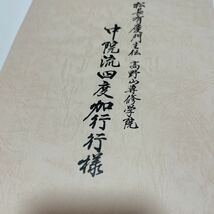 松長有慶前官主伝 高野山専修学院
中院流四度加行行様